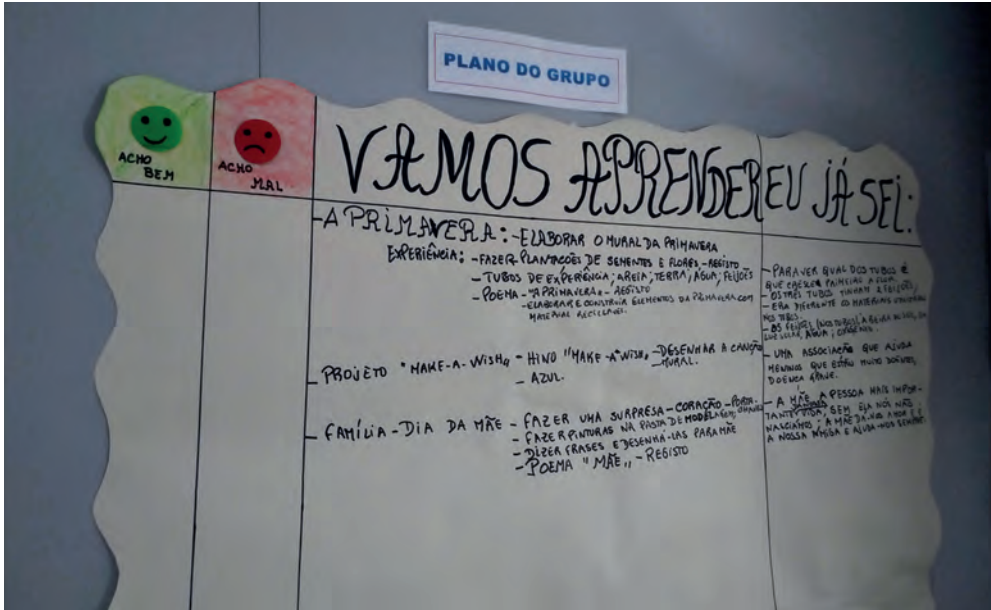 PLANO DO GRUPO
ACHO
BEM
ACHO
MAL
VAMOS APRENDER
EU JÁ SEI:
- A PRIMAVERA: - ELABORAR O MURAL DA PRIMAVERA
EXPERIÊNCIA: - FAZER PLANTAÇÕES DE SEMENTES E FLORES - REGISTO
- TUBOS DE EXPERIÊNCIA; AREIA; TERRA; ÁGUA; FEIJÕES
- POEMA - "A PRIMAVERA" - REGISTO
- ELABORAR E CONSTRUIR ELEMENTOS DA PRIMAVERA COM
MATERIAL RECICLADO.
- PROJETO "MAKE-A-WISH" - HINO "MAKE-A-WISH" - DESENHAR A CANÇÃO
- MURAL.
- AZUL.
- FAMÍLIA - DIA DA MÃE - FAZER UMA SURPRESA - CORAÇÃO - PORTA-
CHAVES
- FAZER PINTURAS NA PASTA DE MODELAGEM;
- DIZER FRASES E DESENHÁ-LAS PARA MÃE
- POEMA "MÃE" - REGISTO
- PARA VER QUAL DOS TUBOS É
QUE CRESCER PRIMEIRO A FLOR.
- OS TRÊS TUBOS TINHAM 2 FEIJÕES,
- ERA DIFERENTE OS MATERIAIS
NOS TUBOS.
- OS (NOS TUBOS),
SOLAR, ÁGUA,
- UMA ASSOCIAÇÃO QUE AJUDA
MENINOS QUE ESTÃO MUITO DOENTES,
DOENÇA GRAVE.
- A MÃE A PESSOA MAIS IMPOR-
TANTE VIDA, SEM ELA NÓS NÃO
NASCÍAMOS; A MÃE DÁ-NOS AMOR E É
A NOSSA AMIGA E AJUDA-NOS SEMPRE